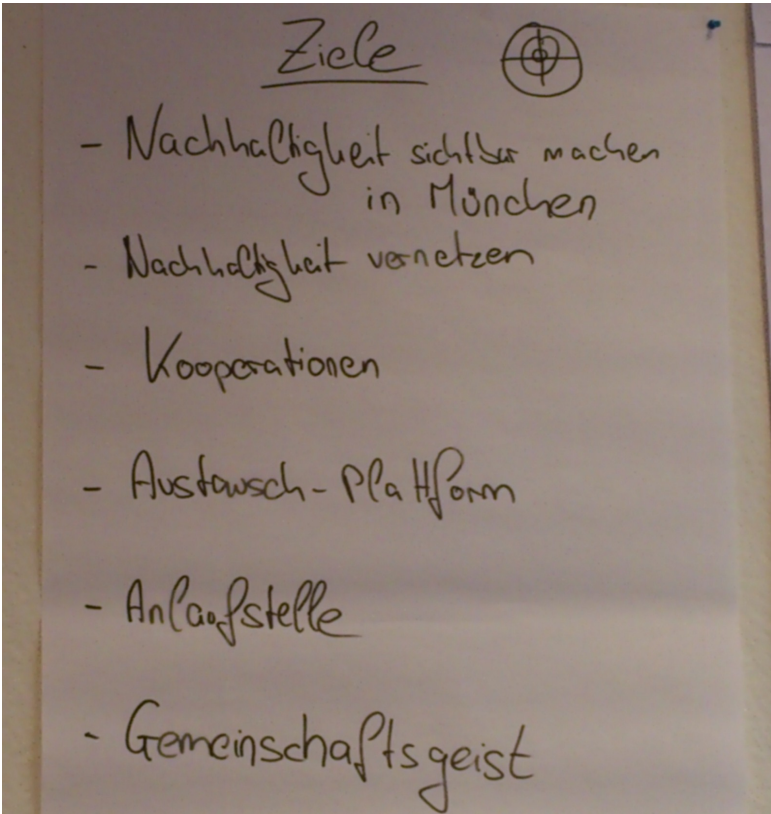 Ziele
- Nachhaltigkeit sichtbar machen
in München
- Nachhaltigkeit vernetzen
- Kooperationen
- Austausch-Plattform
- Anlaufstelle
- Gemeinschaftsgeist